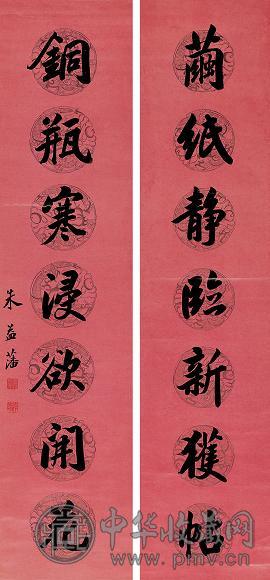 繭紙静臨新獲帖
銅瓶寒浸欲開花
朱益藩
中华收藏网
www.pmv.cn